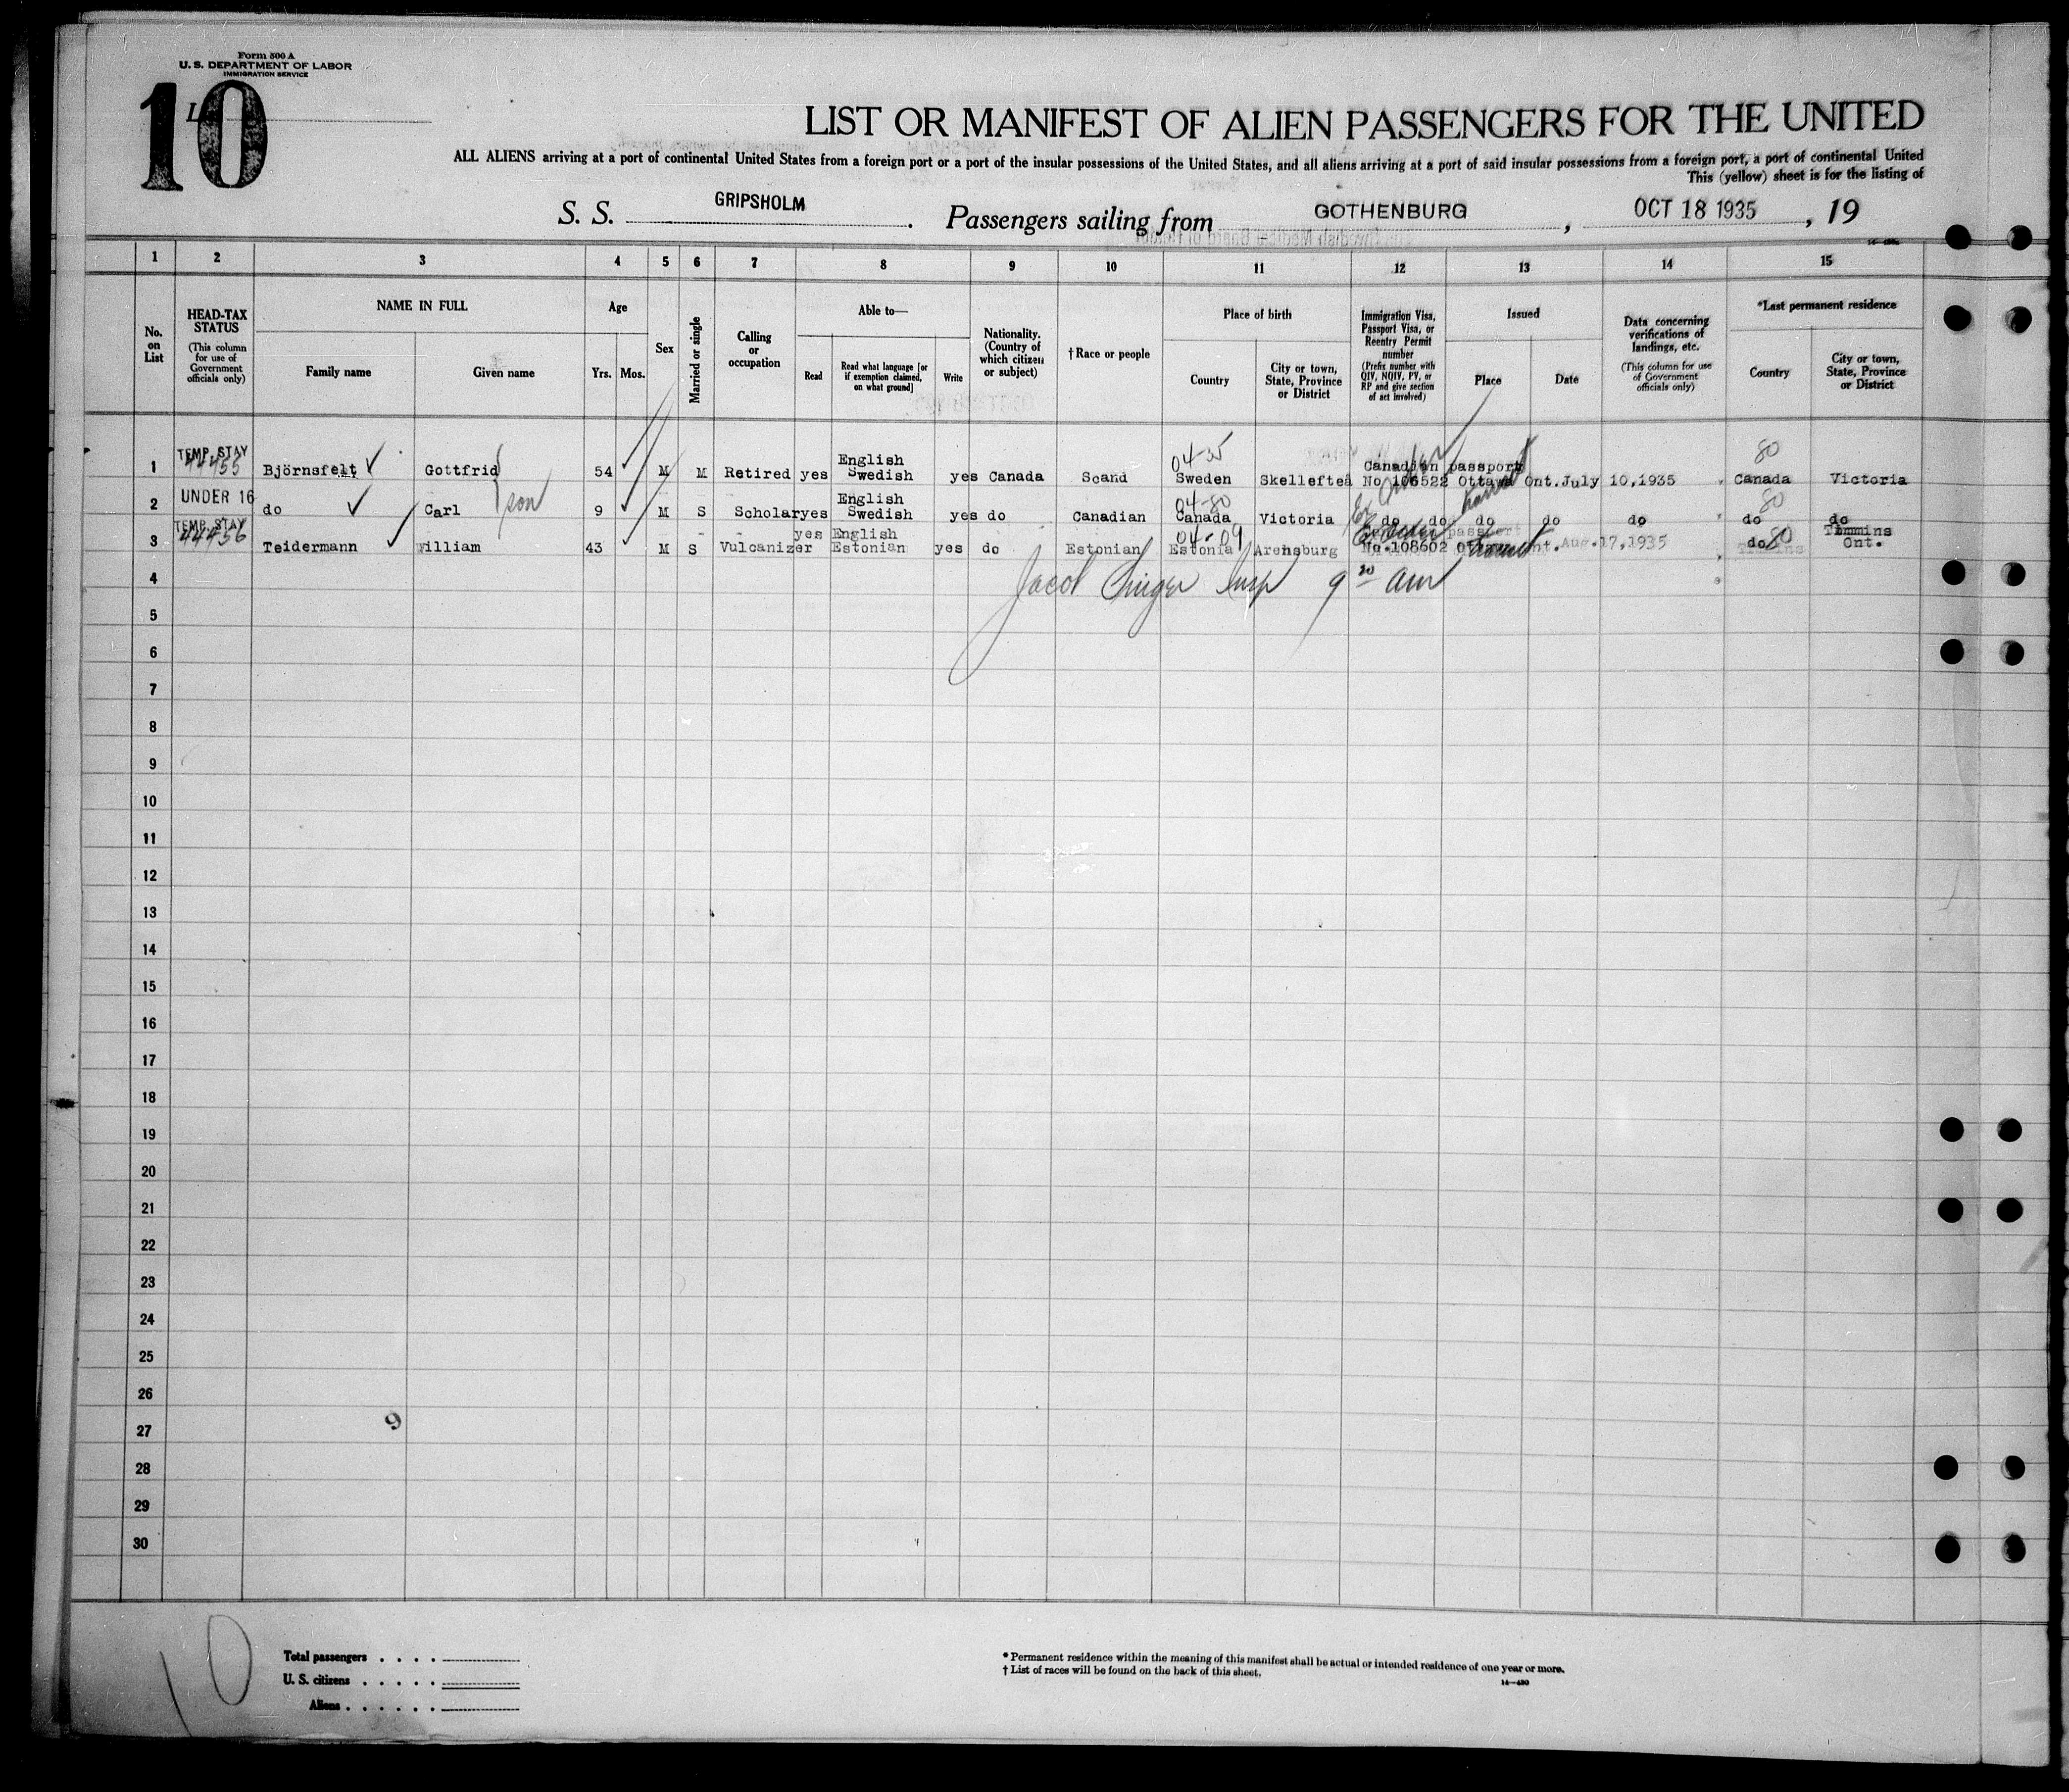 Form 500 A
U. S. DEPARTMENT OF LABOR
IMMIGRATION SERVICE
10
LIST OR MANIFEST OF ALIEN PASSENGERS FOR THE UNITED
ALL ALIENS arriving at a port of continental United States from a foreign port or a port of the insular possessions of the United States, and all aliens arriving at a port of said insular possessions from a foreign port, a port of continental United
This (yellow) sheet is for the listing of
S. S. GRIPSHOLM. Passengers sailing from GOTHENBURG, OCT 18 1935, 19
1 2 3 4 5 6 7 8 9 10 11 12 13 14 15
No. on List
HEAD-TAX STATUS (This column for use of Government officials only)
NAME IN FULL
Family name Given name
Age
Yrs. Mos.
Sex
Married or single
Calling or occupation
Able to—
Read Read what language [or if exemption claimed, on what ground] Write
Nationality. (Country of which citizen or subject)
†Race or people
Place of birth
Country City or town, State, Province or District
Immigration Visa, Passport Visa, or Reentry Permit number (Prefix number with QIV, NQIV, PV, or RP and give section of act involved)
Issued
Place Date
Data concerning verifications of landings, etc. (This column for use of Government officials only)
*Last permanent residence
Country City or town, State, Province or District
TEMP. STAY English 04-35 Canadian passport 80
1 44455 Björnsfelt Gottfrid 54 M M Retired yes Swedish yes Canada Scand Sweden Skellefteå No 106522 Ottawa Ont. July 10,1935 Canada Victoria
UNDER 16 son English 04-80 80
2 do Carl 9 M S Scholar yes Swedish yes do Canadian Canada Victoria do do do do do do do
TEMP. STAY yes English 04-09 passport Timmins
3 44456 Teidermann William 43 M S Vulcanizer Estonian yes do Estonian Estonia Arensburg No.108602 Ont. Aug.17,1935 do 80 Ont.
4 Jacob Insp 9 30 am
5
6
7
8
9
10
11
12
13
14
15
16
17
18
19
20
21
22
23
24
25
26
27
28
29
30
9
10
Total passengers
U. S. citizens
Aliens
* Permanent residence within the meaning of this manifest shall be actual or intended residence of one year or more.
† List of races will be found on the back of this sheet.
14—430